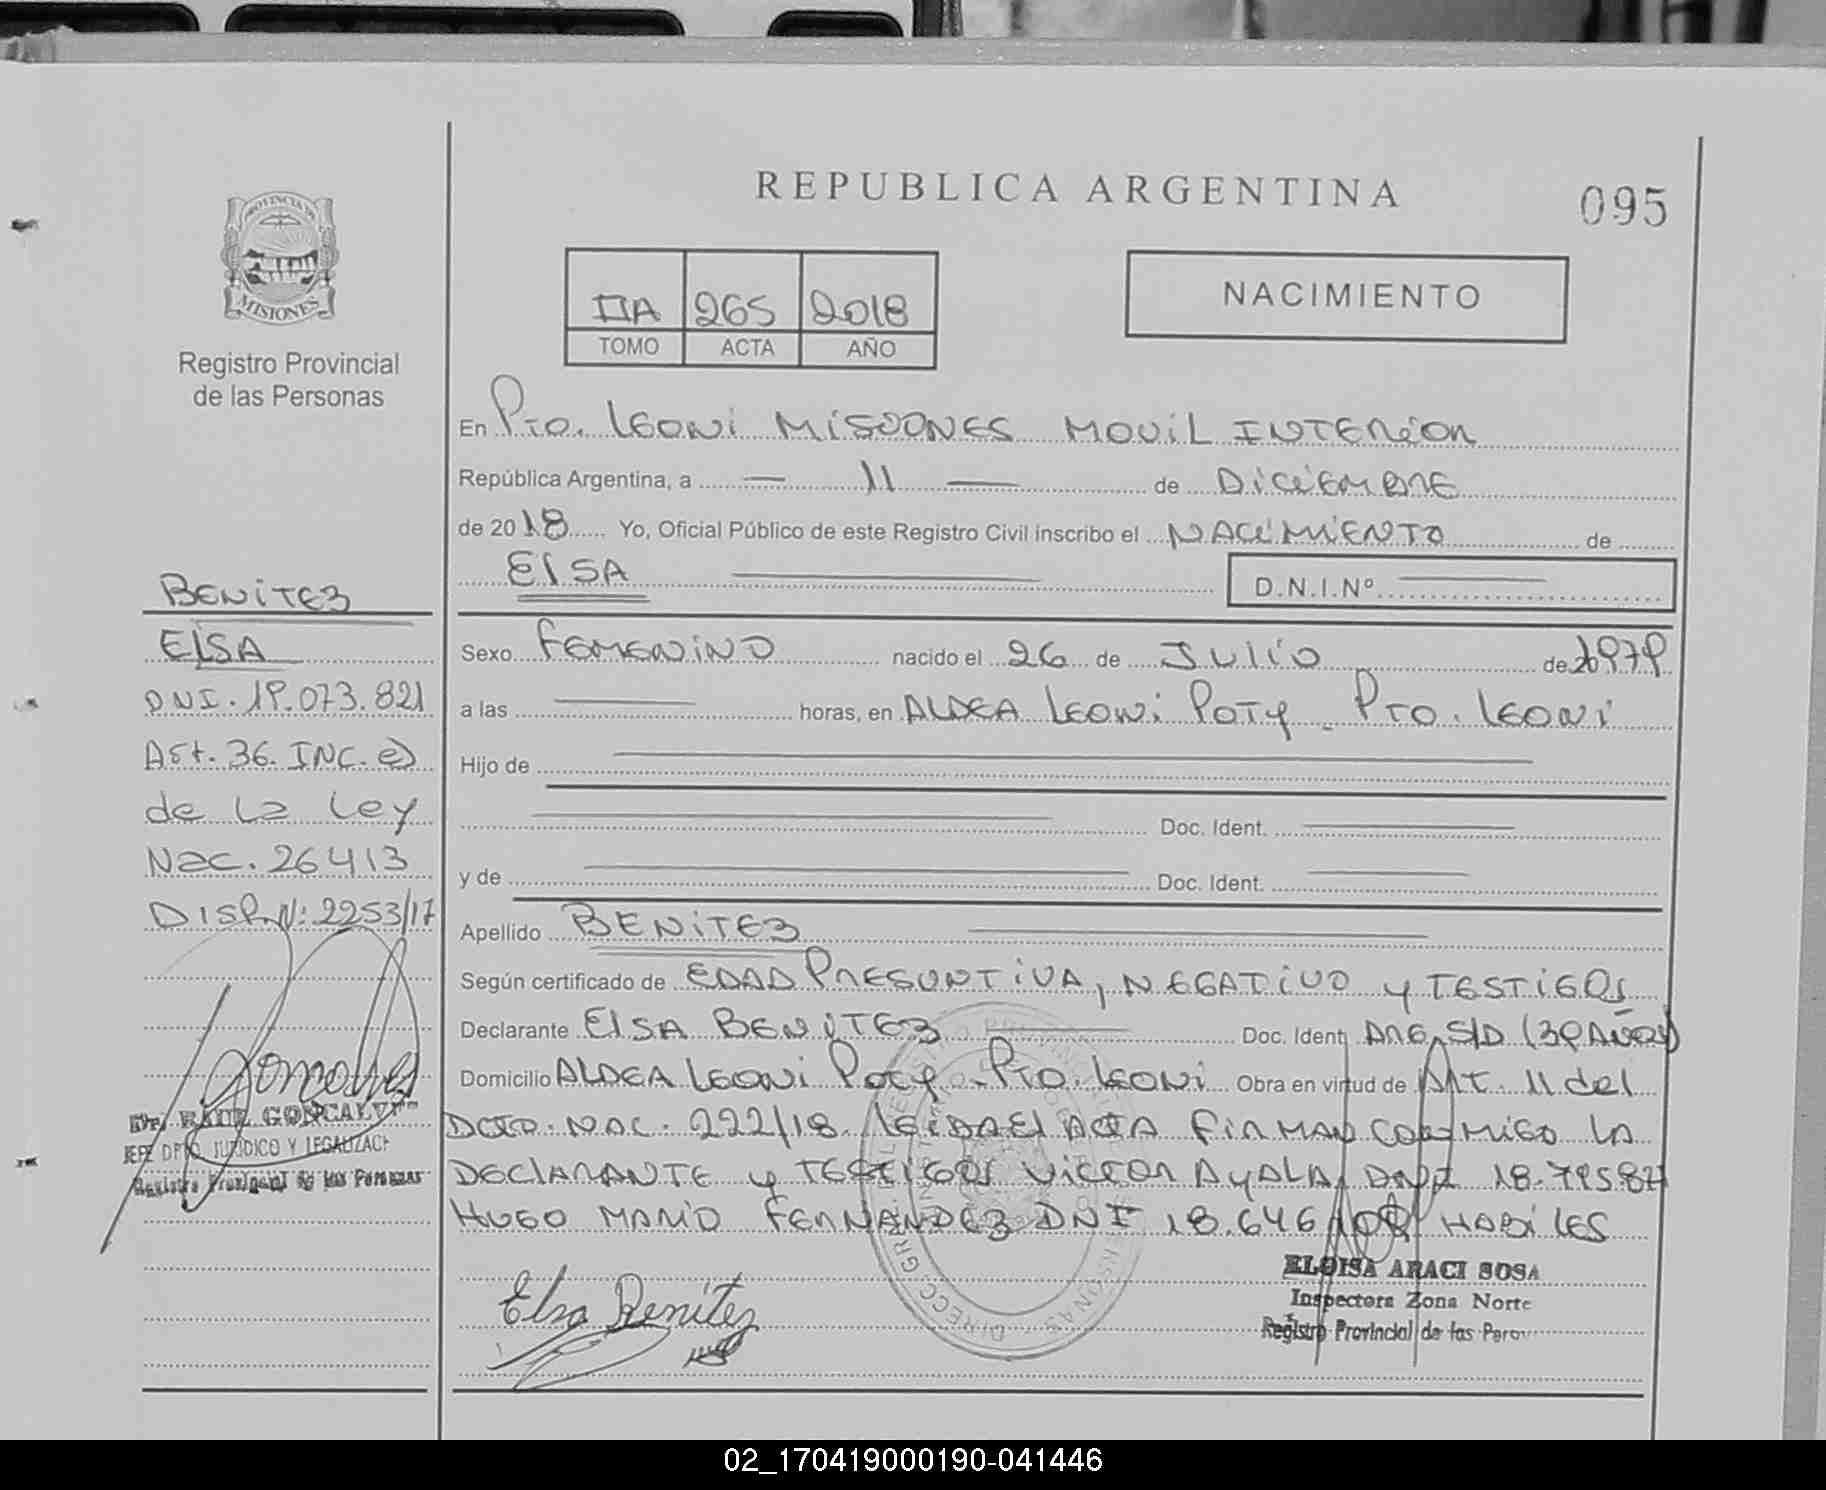 REPUBLICA ARGENTINA
095
PROVINCIA DE
MISIONES
Registro Provincial
de las Personas
IIA 265 2018
TOMO ACTA AÑO
NACIMIENTO
En Pto. Leoni MISIONES MOVIL INTERIOR
República Argentina, a — 11 — de DICIEMBRE
de 2018 Yo, Oficial Público de este Registro Civil inscribo el NACIMIENTO de
ElSA D.N.I.Nº
Sexo FEMENINO nacido el 26 de JULIO de 20 1979
a las horas, en ALDEA Leoni Poty - Pto. Leoni
Hijo de
Doc. Ident.
y de Doc. Ident.
Apellido BENITEZ
Según certificado de EDAD PRESUNTIVA, NEGATIVO y TESTIGOS
Declarante ElSA BENITEZ Doc. Ident. ARG. S/D (39 AÑOS)
Domicilio ALDEA Leoni Poty - Pto. Leoni Obra en virtud de Art. 11 del
DCTO. NAC. 222/18. LEIDA El ACTA FIRMAN CONMIGO LA
DEClARANTE y TESTIGOS VICTOR AyALA, DNI 18.795.87
HUGO MARIO FERNANDEZ DNI 18.646 HABILES
BENITEZ
ElSA
DNI. 19.073.821
Art. 36. INC. e)
de la Ley
Nac. 26413
DISP. N: 2253/17
Dr. RAUL GONCALVE
JEFE DPTO JURIDICO Y LEGALIZACI
Registro Provincial de las Personas
Elsa Benitez
ELOISA ARACI SOSA
Inspectora Zona Norte
Registro Provincial de las Perso
02_170419000190-041446